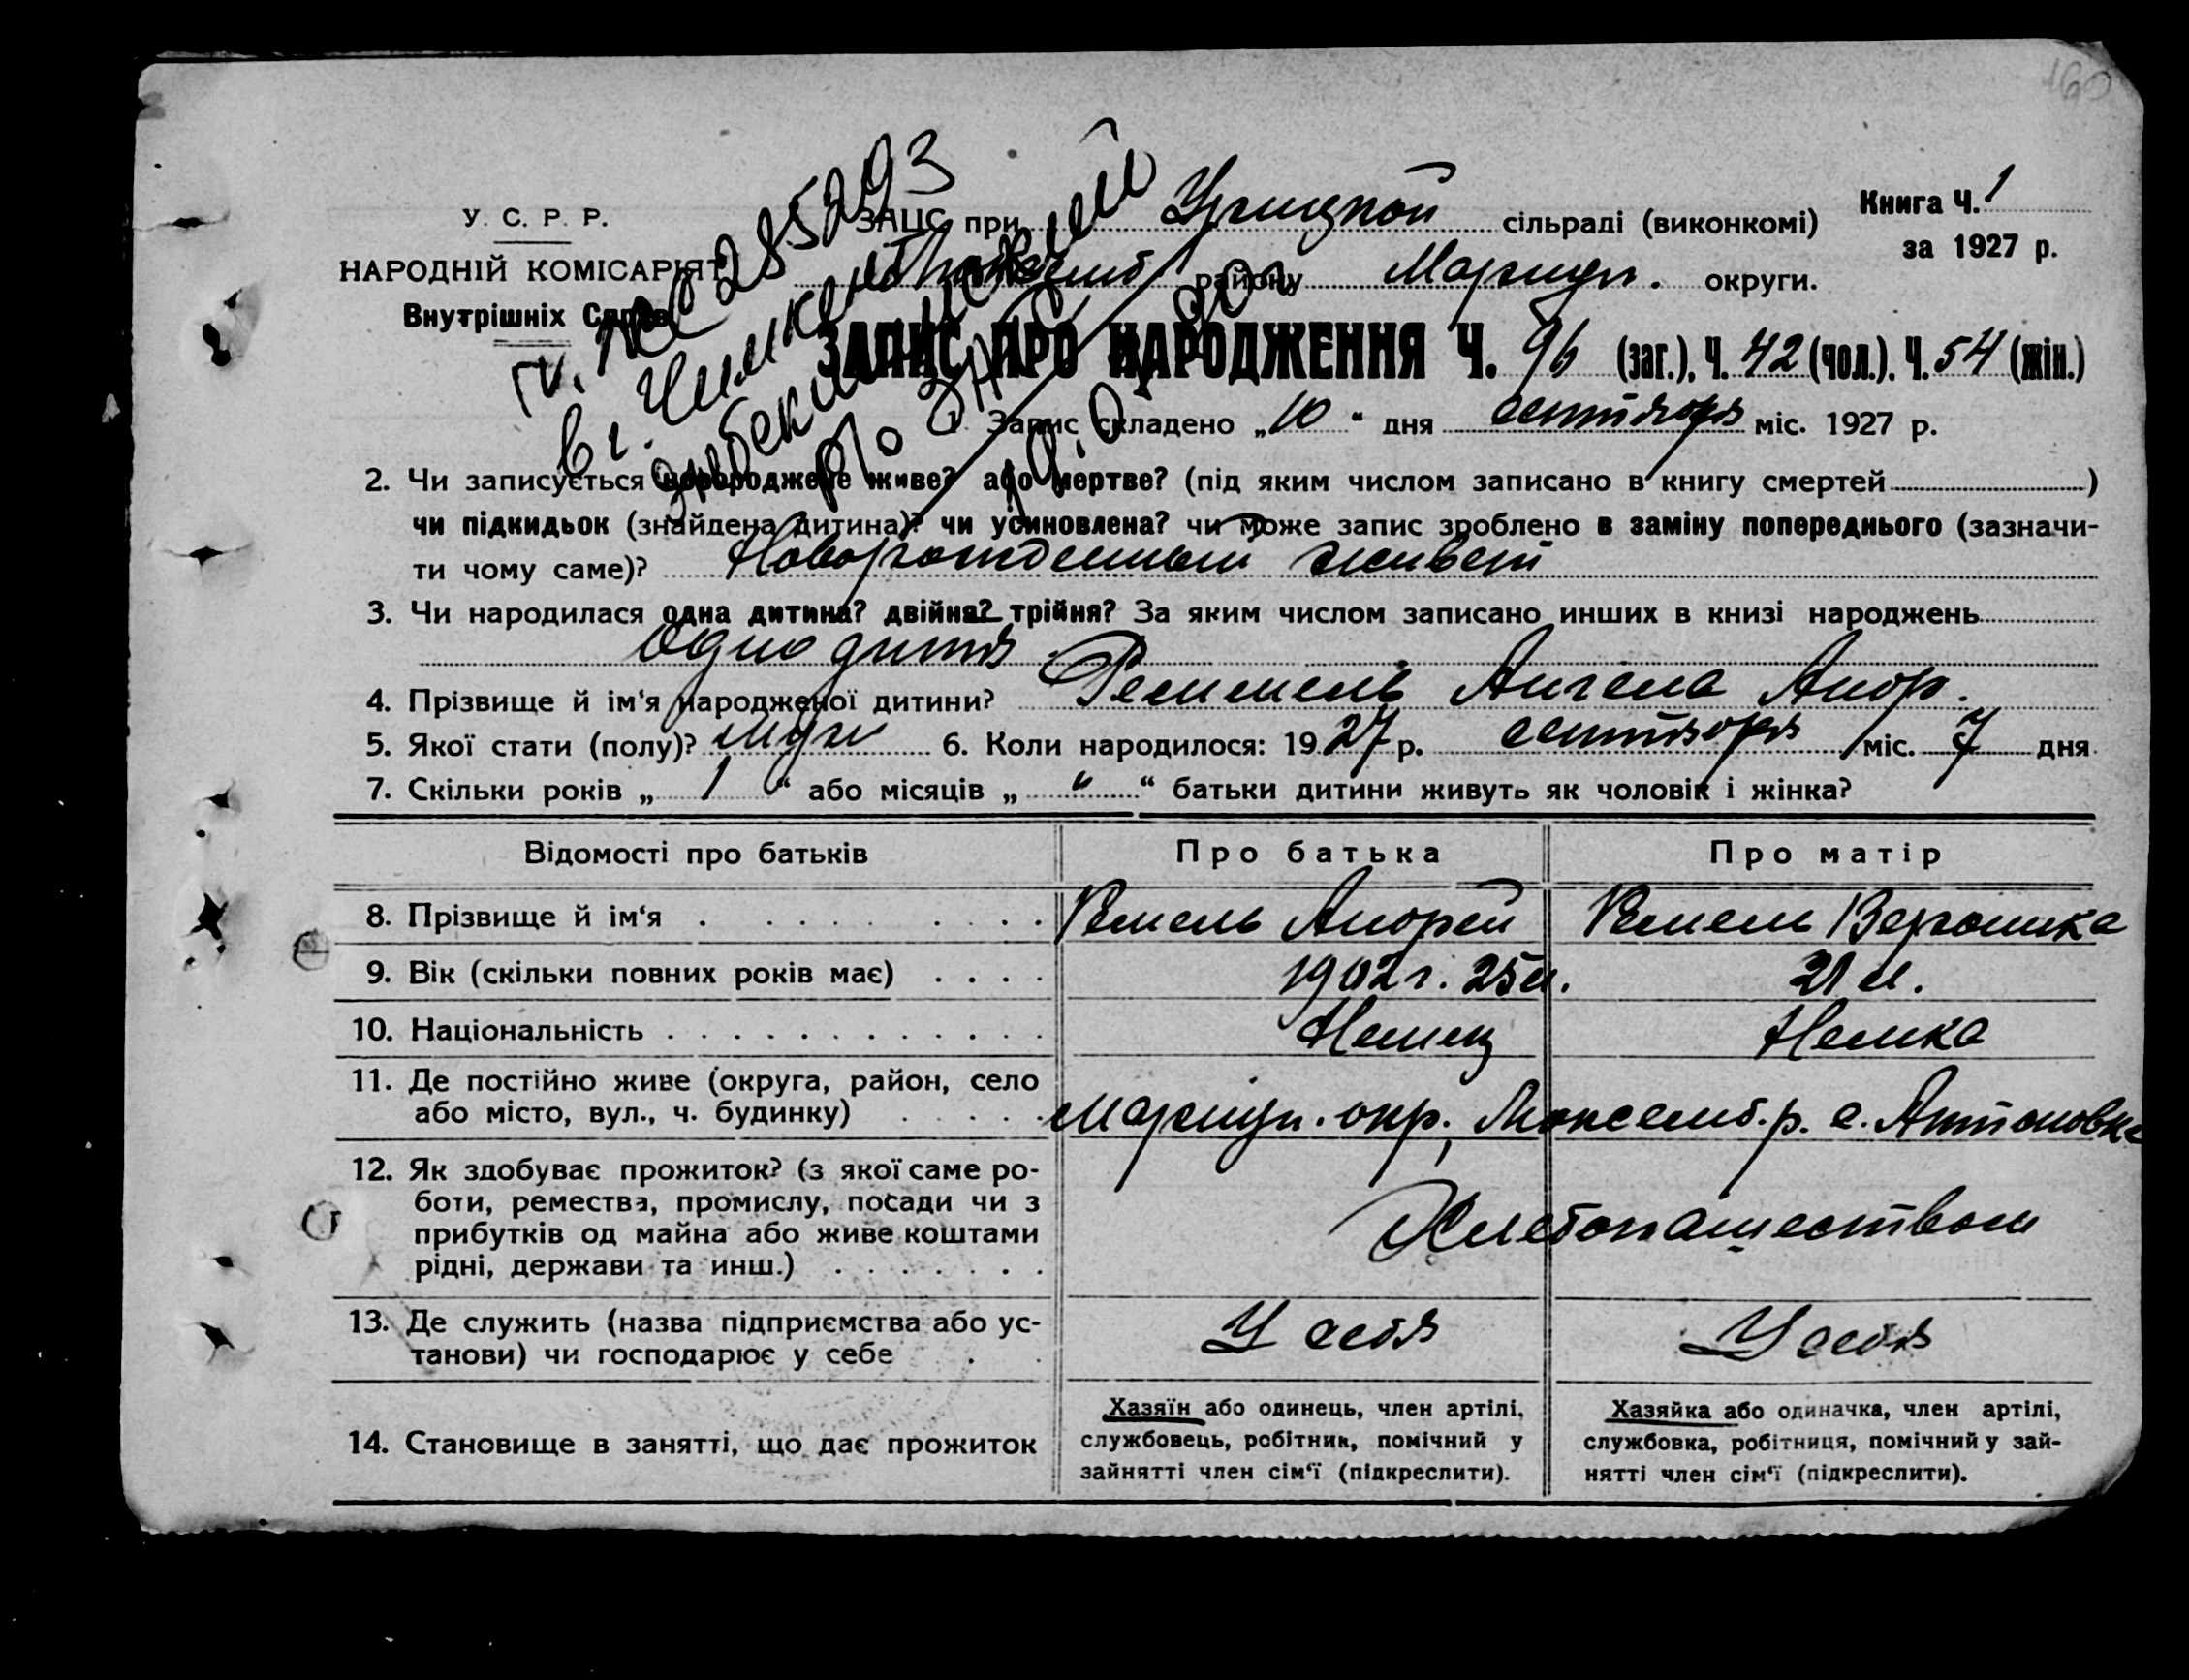 160
У. С. Р. Р.
НАРОДНІЙ КОМІСАРІЯТ
Внутрішніх Справ
ЗАЦС при Урицкой сільраді (виконкомі)
району Мариуп. округи.
Книга Ч. 1
за 1927 р.
285293
в г. Чимкент
ЗАПИС ПРО НАРОДЖЕННЯ Ч. 96 (заг.). Ч. 42 (чол.). Ч. 54 (жін.)
1. Запис складено „10“ дня сентября міс. 1927 р.
2. Чи записується новороджене живе? або мертве? (під яким числом записано в книгу смертей )
чи підкидьок (знайдена дитина)? чи усиновлена? чи може запис зроблено в заміну попереднього (зазначи-
ти чому саме)? Новорожденный живет
3. Чи народилася одна дитина? двійня? трійня? За яким числом записано инших в книзі народжень
Одно дитя
4. Прізвище й ім‘я народженої дитини? Ангела Андр.
5. Якої стати (полу)? муж 6. Коли народилося: 1927 р. сентября міс. 7 дня
7. Скільки років „ 1 “ або місяців „ " “ батьки дитини живуть як чоловік і жінка?
Відомості про батьків Про батька Про матір
8. Прізвище й ім‘я Ремель Андрей Ремель Вероника
9. Вік (скільки повних років має) 1902 г. 25 л. 21 л.
10. Національність Немец Немка
11. Де постійно живе (округа, район, село
або місто, вул., ч. будинку) Мариуп. окр., Люксемб. р. с. Антоновка
12. Як здобуває прожиток? (з якої саме ро-
боти, ремества, промислу, посади чи з
прибутків од майна або живе коштами
рідні, держави та инш.) Хлебопашеством
13. Де служить (назва підприємства або ус-
танови) чи господарює у себе У себя У себя
14. Становище в занятті, що дає прожиток
Хазяїн або одинець, член артілі,
службовець, робітник, помічний у
зайнятті член сім‘ї (підкреслити).
Хазяйка або одиначка, член артілі,
службовка, робітниця, помічний у зай-
нятті член сім‘ї (підкреслити).